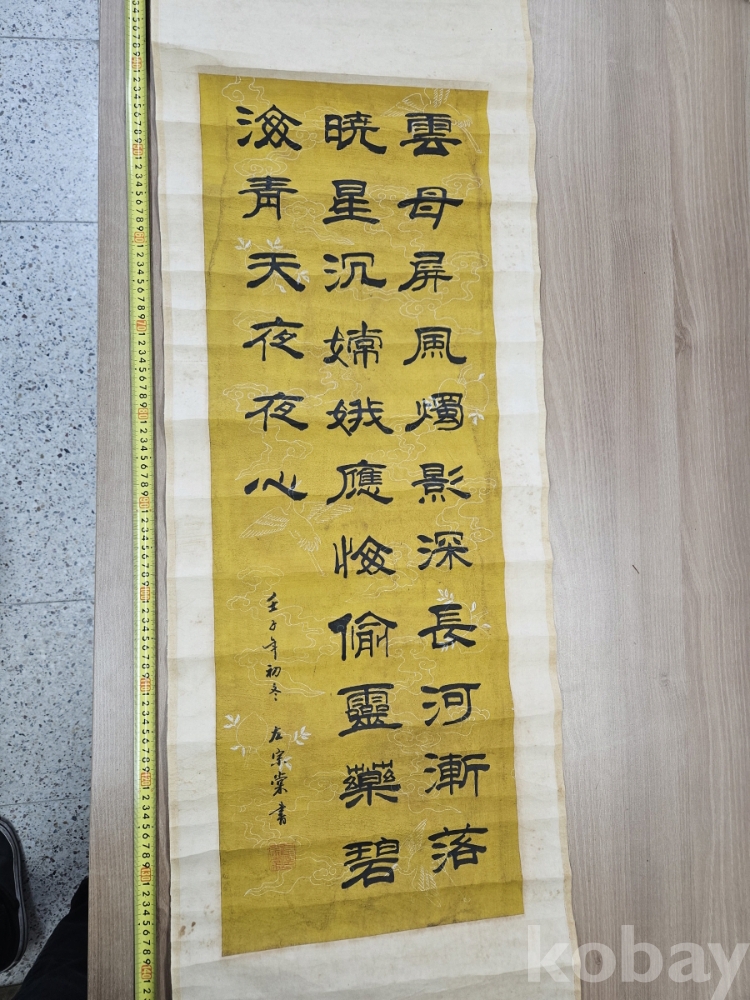 雲母屏風燭影深長河漸落
曉星沉嫦娥應悔偷靈藥碧
海青天夜夜心
壬子年初冬 左宗棠書
kobay